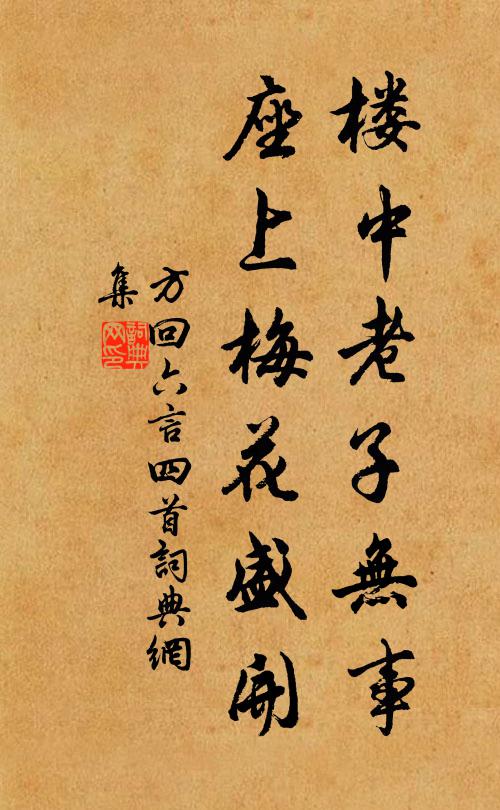 楼中老子無事
座上梅花盛開
方回六言四首詞典網
集
詞典网印